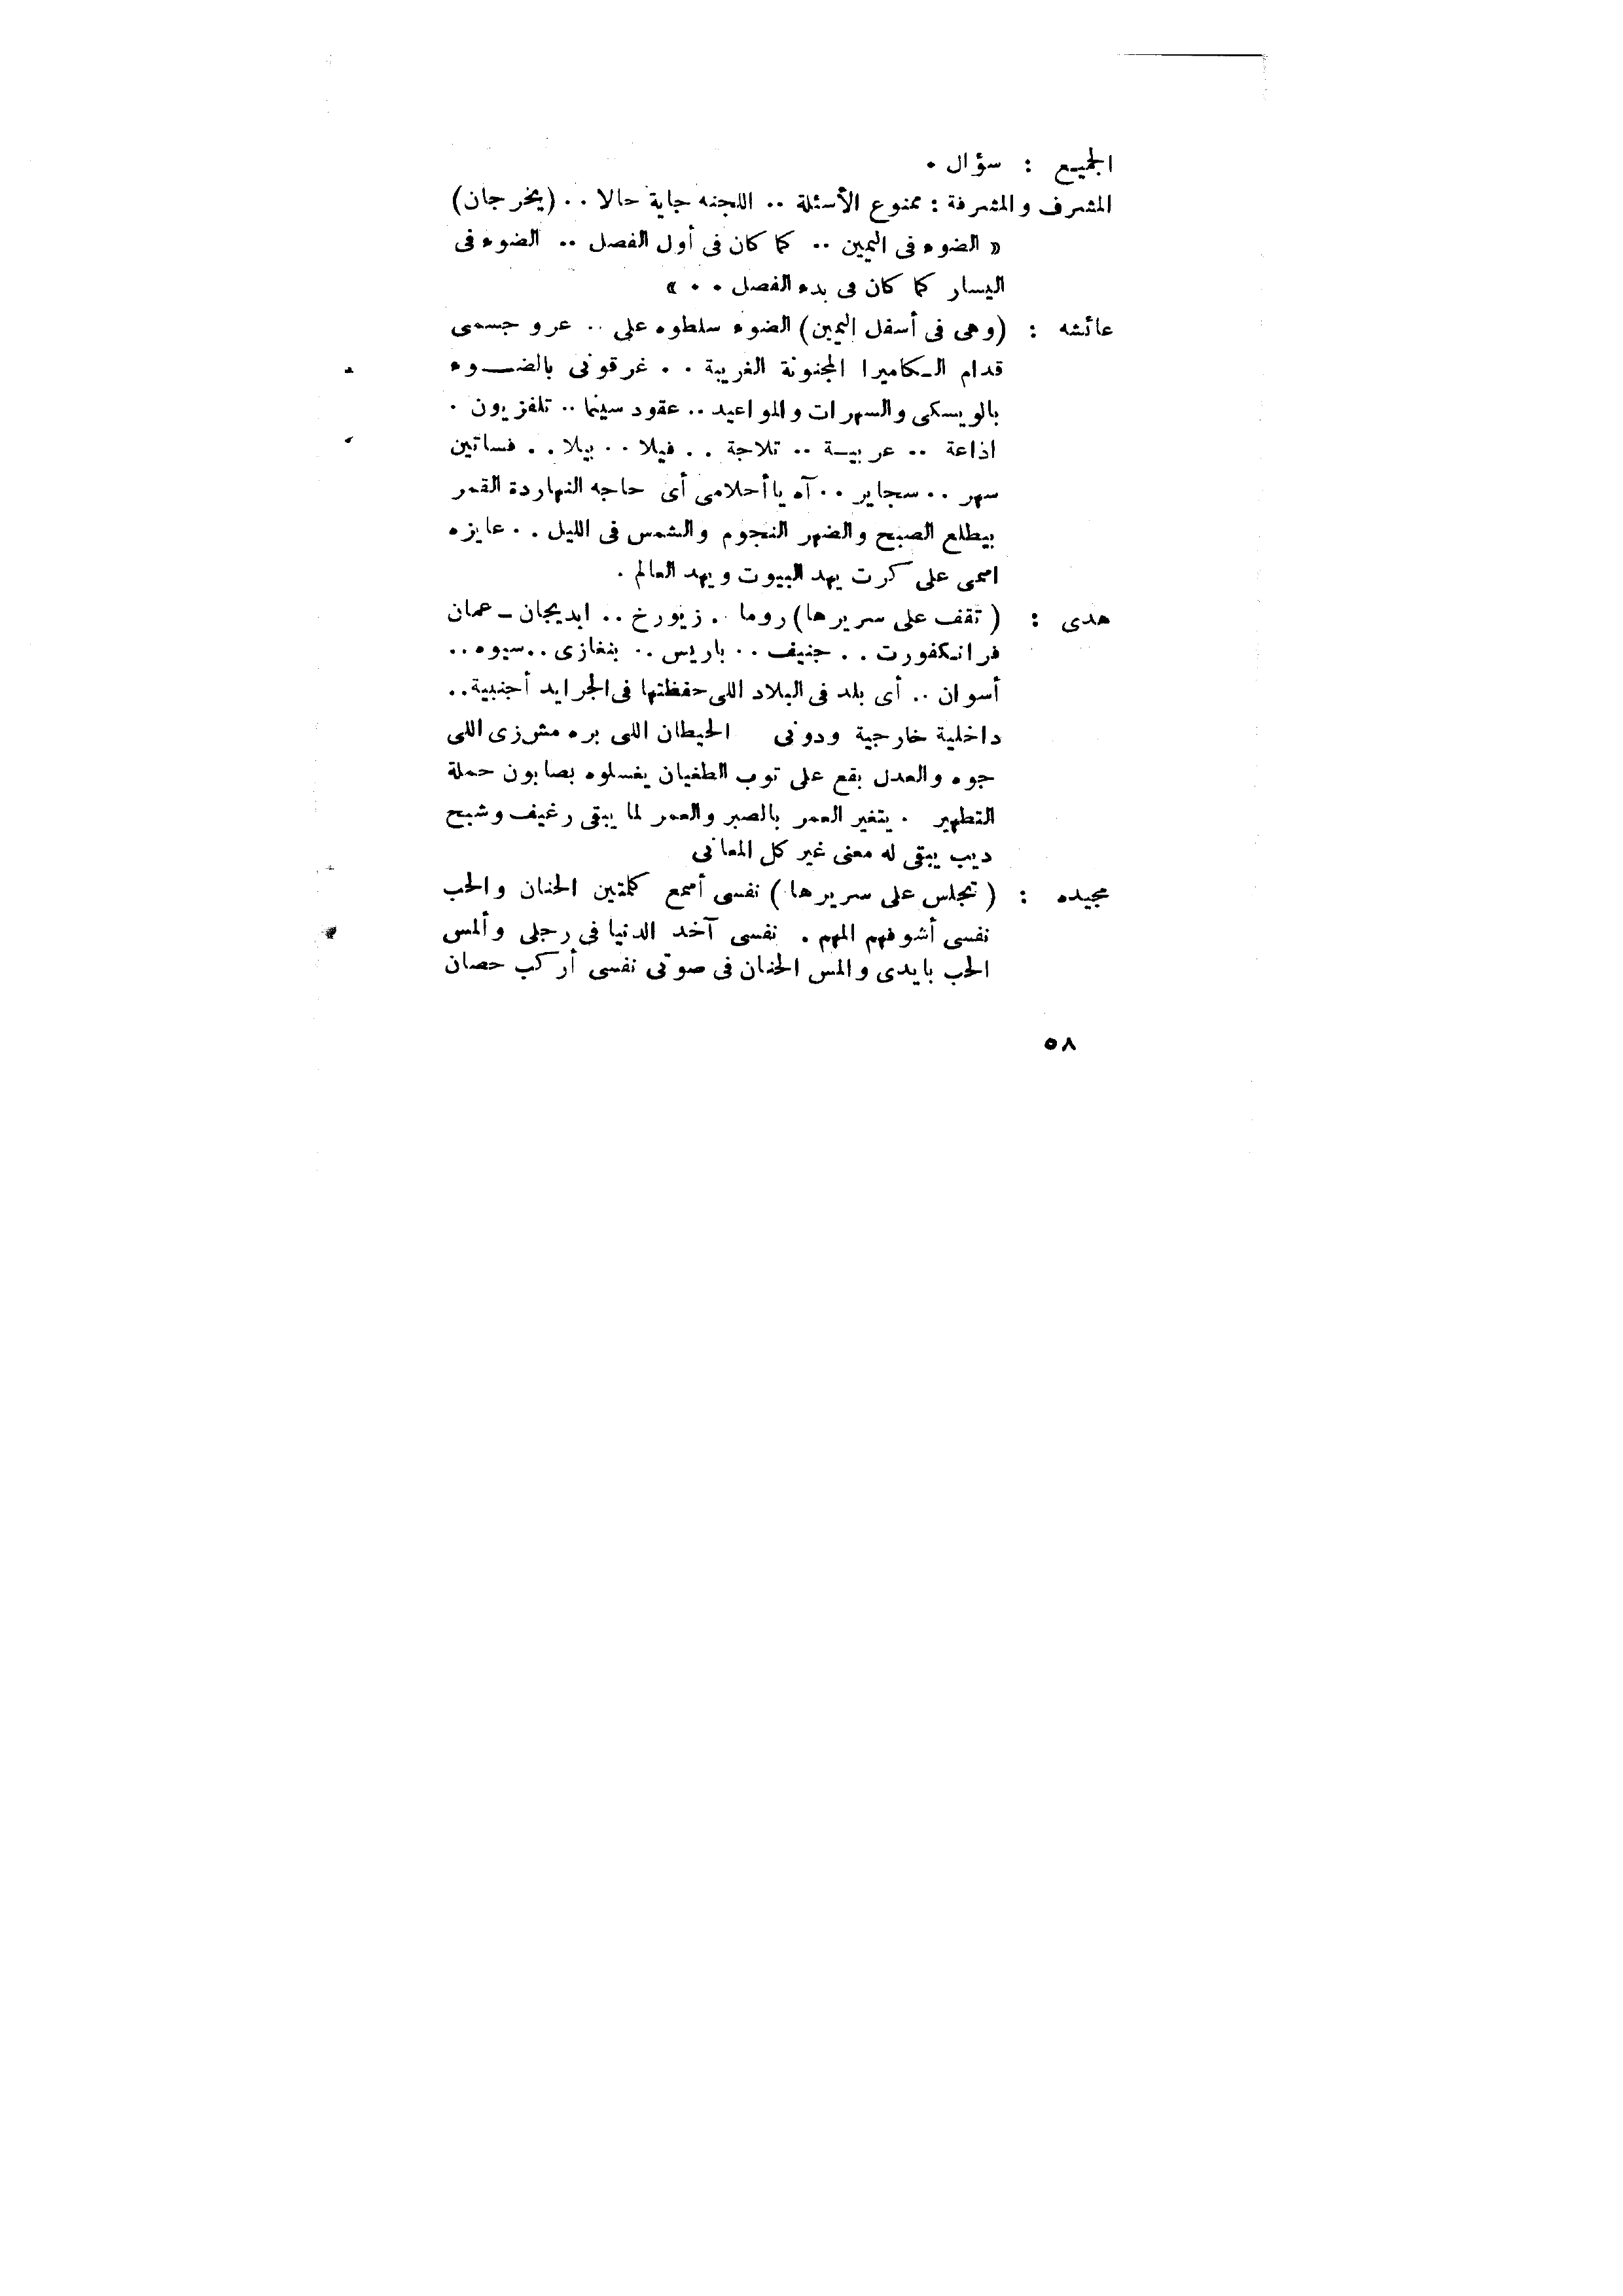 الجميع : سؤال .
المشرف والمشرفة : ممنوع الأسئلة .. اللجنه جاية حالا .. (يخرجان)
« الضوء فى اليمين .. كما كان فى أول الفصل .. الضوء فى
اليسار كما كان فى بدء الفصل .. »
عائشه : (وهى فى أسفل اليمين) الضوء سلطوه على .. عرو جسمى
قدام الكاميرا المجنونة الغريبة .. غرقونى بالضوء
بالويسكى والسهرات والمواعيد .. عقود سينما .. تلفزيون .
اذاعة .. عربية .. تلاجة .. فيلا .. بيلا .. فساتين
سهر .. سجاير .. آه ياأحلامى أى حاجه النهاردة القمر
بيطلع الصبح والضهر النجوم والشمس فى الليل .. عايزه
اسمى على كرت يهد البيوت ويهد العالم .
هدى : (تقف على سريرها) روما .. زيورخ .. ابديجان - عمان
فرانكفورت .. جنيف .. باريس .. بنغازى .. سيوه ..
أسوان .. أى بلد فى البلاد اللى حفظتها فى الجرايد أجنبية ..
داخلية خارجية ودونى الحيطان اللى بره مش زى اللى
جوه والعدل بقع على توب الطغيان يغسلوه بصابون حملة
التطهير . يتغير العمر بالصبر والعمر لما يبقى رغيف وشبح
ديب يبقى له معنى غير كل المعانى
مجيده : (تجلس على سريرها) نفسى أسمع كلمتين الحنان والحب
نفسى أشوفهم المهم . نفسى آخد الدنيا فى رجلى وألمس
الحب بايدى والمس الحنان فى صوتى نفسى أركب حصان
٥٨